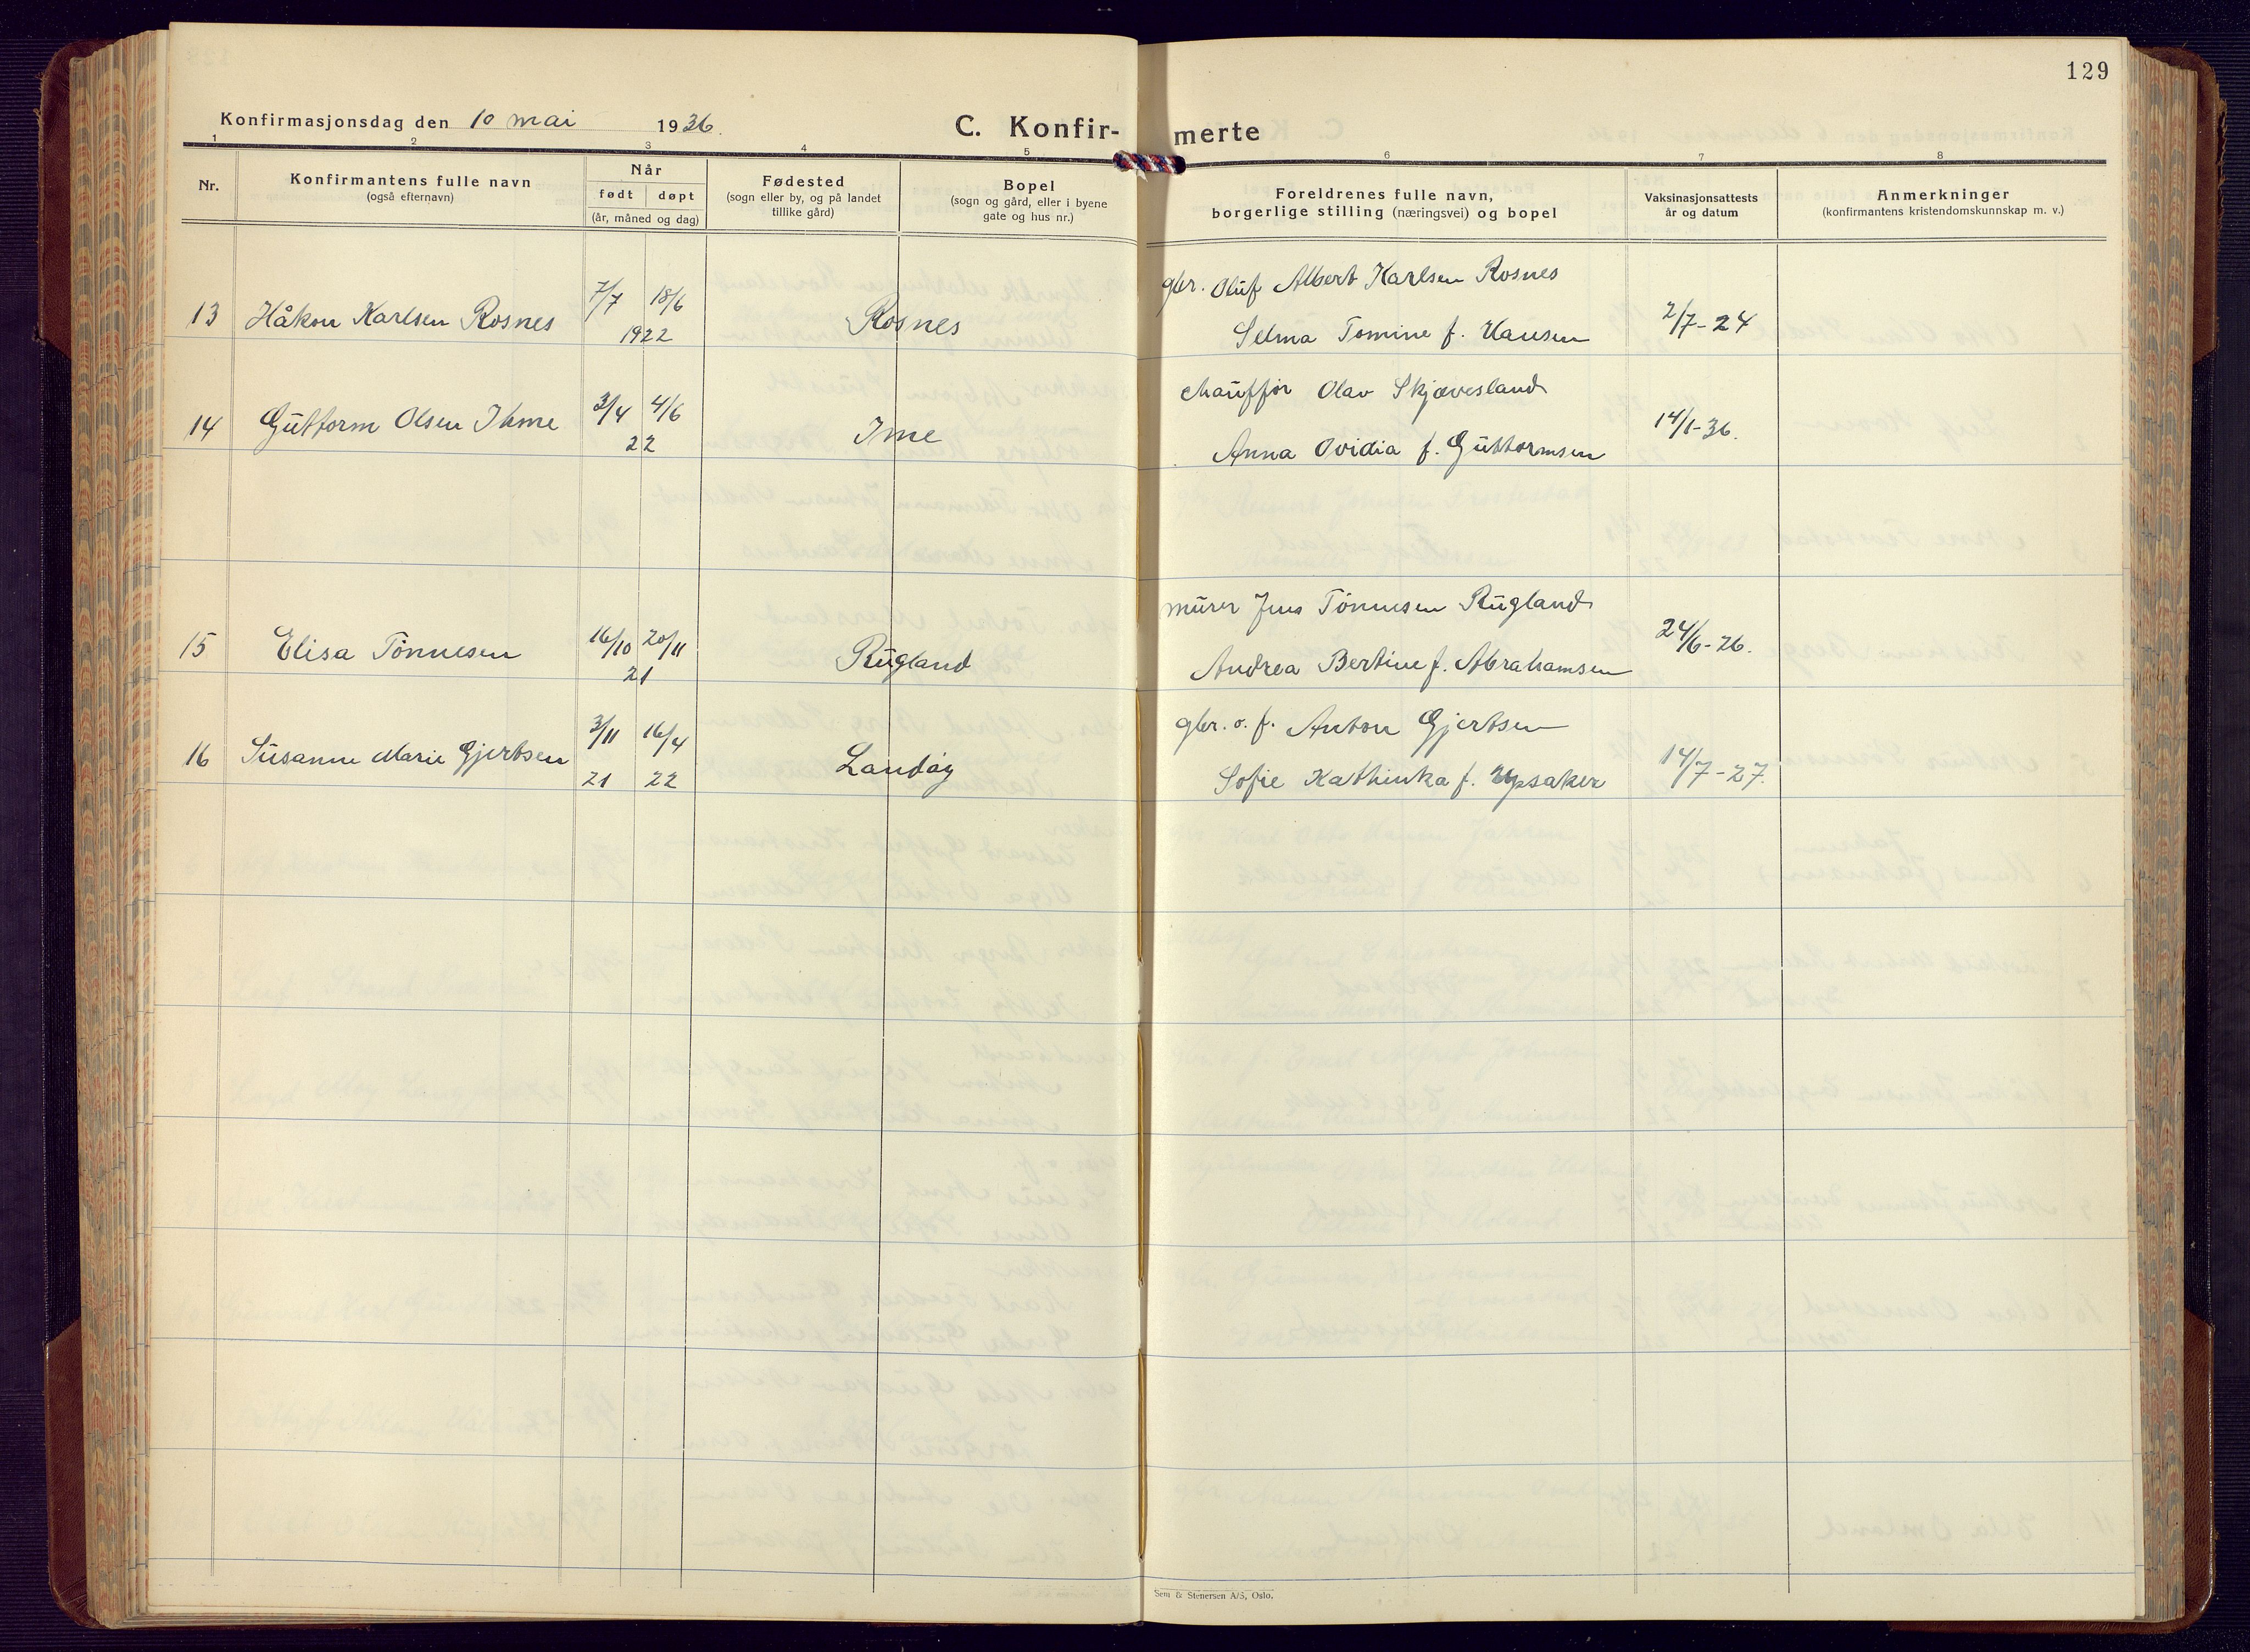 129
Konfirmasjonsdag den 10 mai 1936.
C. Konfir-merte
1 2 3 4 5 6 7 8
Nr.
Konfirmantens fulle navn
(også efternavn)
Når
født døpt
(år, måned og dag)
Fødested
(sogn eller by, og på landet
tillike gård)
Bopel
(sogn og gård, eller i byene
gate og hus nr.)
Foreldrenes fulle navn,
borgerlige stilling (næringsvei) og bopel
Vaksinasjonsattests
år og datum
Anmerkninger
(konfirmantens kristendomskunnskap m. v.)
gbr. Oluf Albert Karlsen Rosnes
13 Håkon Karlsen Rosnes 7/7 18/6 1922 Rosnes
Selma Tomine f. Hansen 2/7-24
chauffør Olav Skjævesland
14 Guttorm Olsen Ihme 3/4 4/6 22 Ime
Anna Ovidia f. Guttormsen 14/1-36.
murer Jens Tönnesen Rugland
15 Elisa Tönnesen 16/10 20/11 21 Rugland
Andrea Bertine f. Abrahamsen 24/6-26.
gbr. o. f. Anton Gjertsen
16 Susanne Marie Gjertsen 3/11 21 16/4 22 Landøy
Sofie Kathinka f. 14/7-27.
Sem & Stenersen A/S, Oslo.